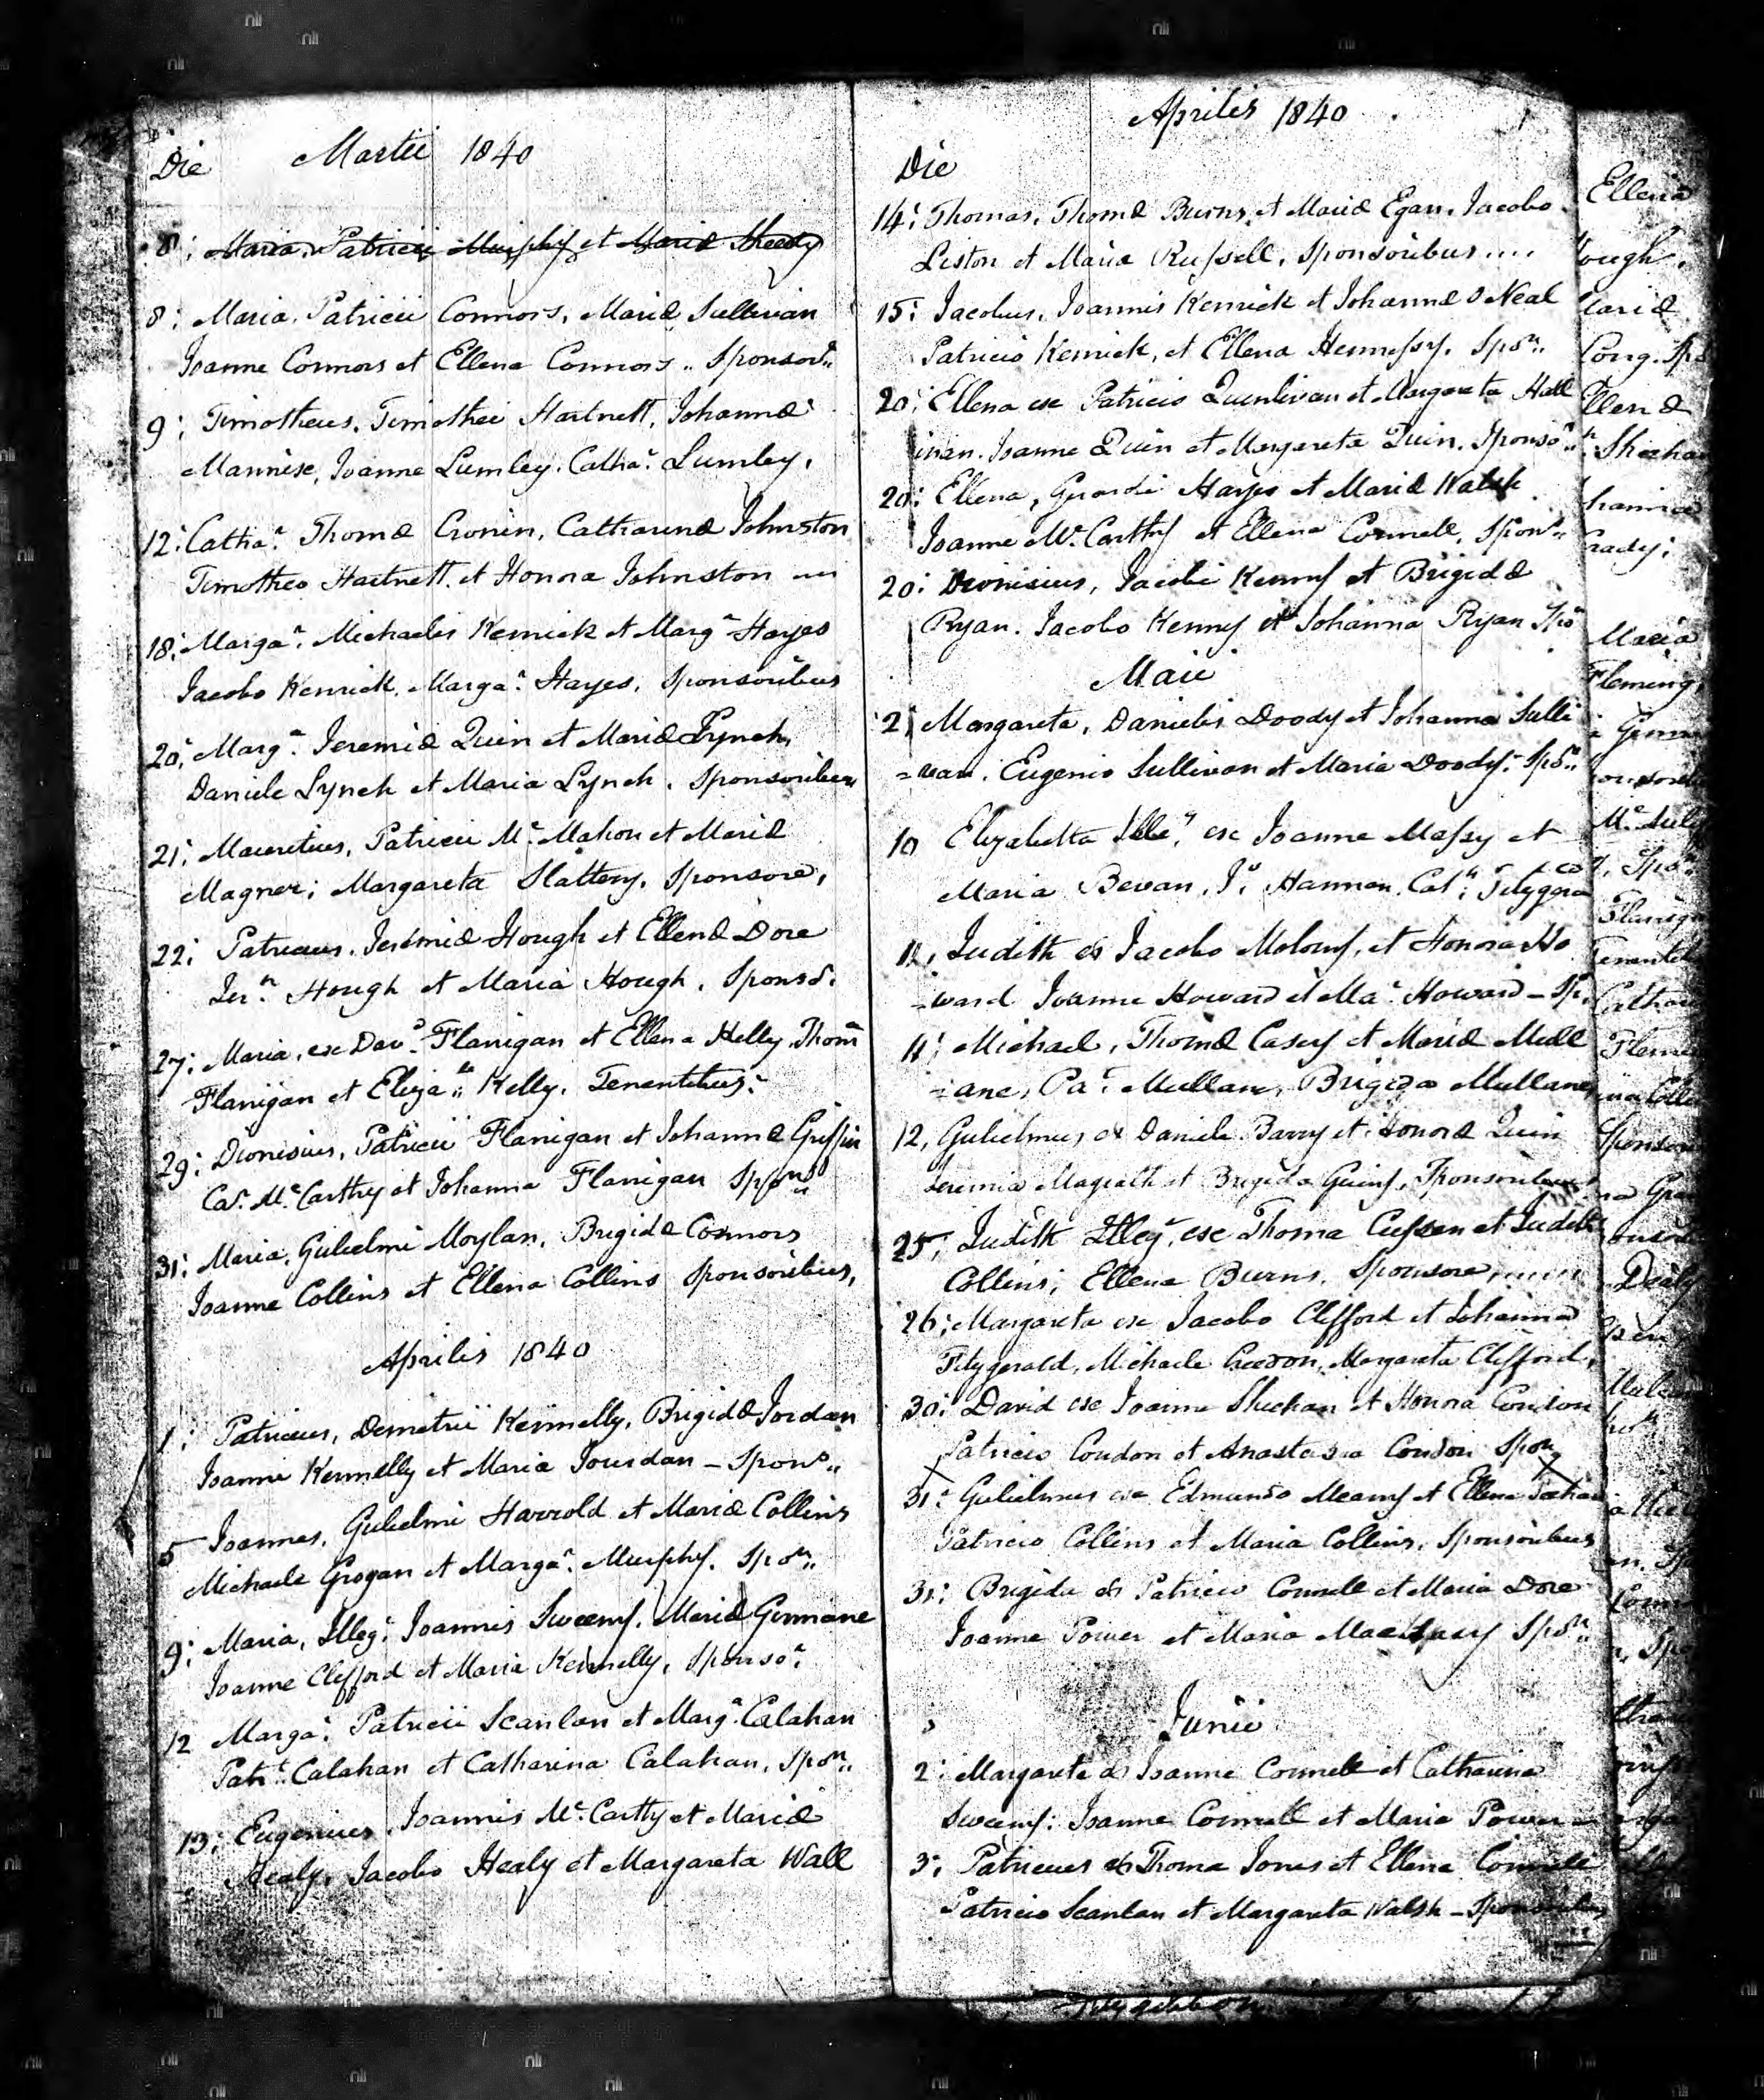 Die Martii 1840
8: Maria, Patricii Murphy et Mariæ Sheedy
8: Maria, Patricii Connors, Mariæ Sullivan
Joanne Connors et Ellena Connors .. Sponsor:
9: Timotheus, Timothei Hartnett, Johannæ
Mannise, Joanne Lumley, Catha: Lumley,
12: Catha: Thomæ Cronin, Catharinæ Johnston
Timotheo Hartnett et Honora Johnston
18: Marga: Michaelis Kenrick et Marg Hayes
Jacobo Kenrick, Marga: Hayes, Sponsoribus
20: Marg: Jeremiæ Quin et Mariæ Lynch,
Daniele Lynch et Maria Lynch, Sponsoribus
21: Mauritius, Patricii Mc Mahon et Mariæ
Magner; Margareta Slattery, Sponsore,
22: Patricius, Jeremiæ Hough et Ellenæ Dore
Jer: Hough et Maria Hough, Sponso:
27: Maria, ex Dav: Flanigan et Ellena Kelly, Thom
Flanigan et Eliza: Kelly, Tenentibus:
29: Dionisius, Patricii Flanigan et Johannæ Griffin
Ca: Mc Carthy et Johanna Flanigan Spons
31: Maria, Gulielmi Moylan, Brigidæ Connors
Joanne Collins et Ellena Collins Sponsoribus,
Aprilis 1840
1: Patricius, Demetrii Kennelly, Brigidæ Jordan
Joanne Kennelly et Maria Jourdan - Spons:
5 Joannes, Gulielmi Harrold et Mariæ Collins
Michaele Grogan et Marga: Murphy, Spon:
9: Maria, Illeg: Joannis Sweeny, Mariæ Grimane
Joanne Clifford et Maria Kennelly, Sponso:
12 Marga: Patricii Scanlan et Marg: Calahan
Patr: Calahan et Catharina Calahan, Spon:
13: Eugenius Joannis Mc Carthy et Mariæ
Healy, Jacobo Healy et Margareta Wall
Aprilis 1840
Die
14: Thomas, Thomæ Burns, et Mariæ Egan, Jacobo
Liston et Maria Russell, Sponsoribus ....
15: Jacobus, Joannis Kenrick et Johannæ O Neal
Patricio Kenrick, et Ellena Hennessy, Spon:
20: Ellena ex Patricio Quinlivan et Margareta Hall
inan. Joanne Quin et Margareta Quin, Sponso:
20: Ellena, Gerardi Hayes et Mariæ Walsh
Joanne Mc Carthy et Ellena Connell, Spons:
20: Dionisius, Jacobi Kenny et Brigidæ
Ryan. Jacobo Kenny et Johanna Ryan Spo
Maii
2: Margareta, Danielis Doody et Johanna Sulli
=van. Eugenio Sullivan et Maria Doody: Spon:
10 Elizabetta Ille: ex Joanne Massy et
Maria Bevan, Jo: Hannan, Cat: Fitzgera
11: Judith ex Jacobo Molony, et Honora Ho
-ward Joanne Howard et Ma: Howard - Sp.
11: Michael, Thomæ Casey et Mariæ Mull
-ane, Pa: Mullane, Brigida Mullane,
12, Gulielmus ex Daniele Barry et Honora Quin
Jeremia Magrath et Brigida Guiny, Sponsoribus
25, Judith Illeg: ex Thoma Cussen et Judith
Collins; Ellena Burns, Sponsore,
26: Margareta ex Jacobo Clifford et Johanna
Fitzgerald, Michaele Creedon, Margareta Clifford,
30: David ex Joanne Sheehan et Honora Condon
Patricio Condon et Anastasia Condon Spon
31: Gulielmus ex Edmundo Meany et Ellena
Patricio Collins et Maria Collins, Sponsoribus
31: Brigida ex Patricio Connell et Maria Dore
Joanne Power et Maria Spon:
Junii
2: Margareta ex Joanne Connell et Catharina
Sweeny: Joanne Connell et Maria Power
3: Patricius ex Thoma Jones et Ellena Connell
Patricio Scanlan et Margareta Walsh - Sponsoribus
Ellena
ough,
Mc
Maria
Fleming,